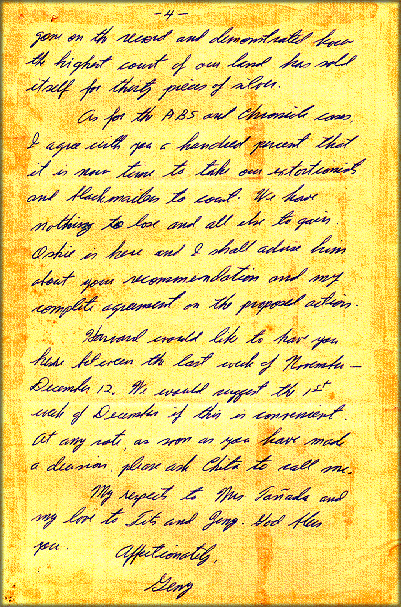 - 4 -
gone on the record and demonstrated how
the highest court of our land has sold
itself for thirty pieces of silver.
As for the ABS and Chronicle cases,
I agree with you a hundred percent that
it is now time to take our extortionists
and blackmailers to court. We have
nothing to lose and all else to gain.
Oskie is here and I shall advise him
about your recommendation and my
complete agreement on the proposed actions.
Harvard would like to have you
here between the last week of November –
December 12. We would suggest the 1st
week of December if this is convenient.
At any rate, as soon as you have made
a decision, please ask Chita to call me.
My respects to Mrs Tañada and
my love to and God bless
you.
Affectionately,